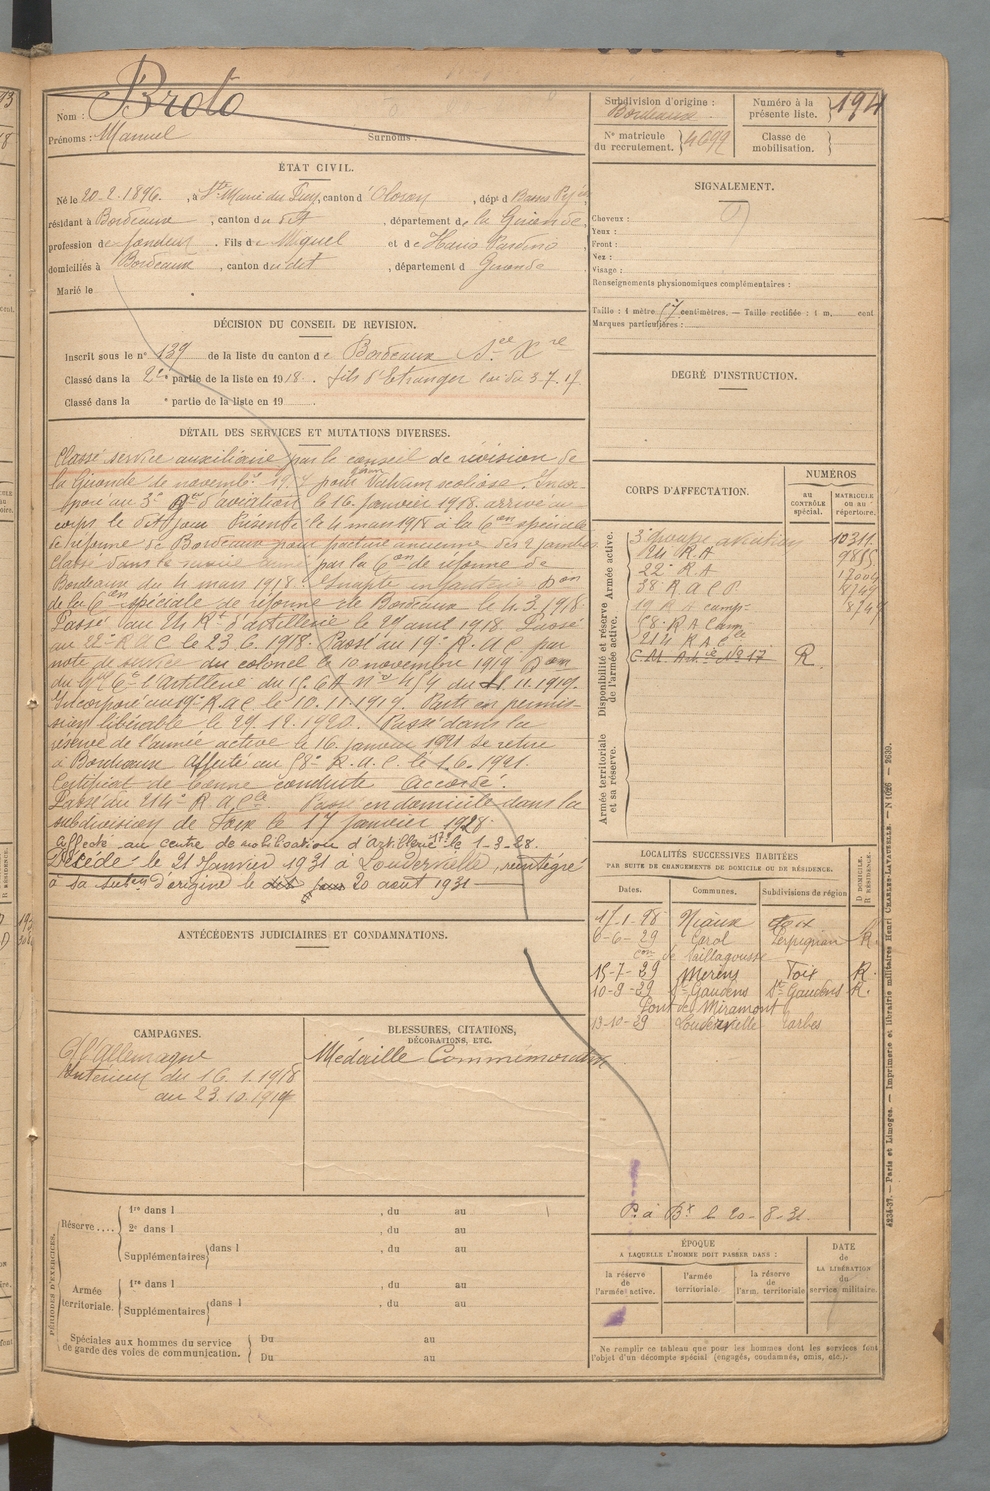 Nom : Broto
Prénoms : Manuel Surnoms :
Subdivision d'origine : Bordeaux
Numéro à la présente liste. 194
N° matricule du recrutement. 4099
Classe de mobilisation.
ÉTAT CIVIL.
Né le 20-2-1896, à Ste Marie du canton d'Oloron, dépt d Basses Pyr
résidant à Bordeaux, canton du dit, département de la Gironde,
profession de fondeur. Fils de Miguel et de
domiciliés à Bordeaux, canton du dit, département d Gironde
Marié le
DÉCISION DU CONSEIL DE REVISION.
Inscrit sous le n° 139 de la liste du canton de Bordeaux
Classé dans la 2e partie de la liste en 1918. fils d'Etranger loi du 3.7.17
Classé dans la e partie de la liste en 19
DÉTAIL DES SERVICES ET MUTATIONS DIVERSES.
Classé service auxiliaire par le conseil de révision de
la Gironde de novembre pour scoliose. Incor-
poré au 3e d'aviation le 16 Janvier 1918. arrivé au
corps le dit jour Présenté le 4 mars 1918 à la Con spéciale
de réforme de Bordeaux pour fracture ancienne des 2 jambes.
Classé dans par la Con de réforme de
Bordeaux du 4 mars 1918. Inapte infanterie Don
de la Con spéciale de réforme de Bordeaux le 4.3.1918.
Passé au 24 Rt d'artillerie le 29 avril 1918. Passé
au 22e R A C le 23.6.1918. Passé au 19e R.A.C. par
note de service du colonel le 10 novembre 1919. Don
du l'Artillerie du 15. CA No 454 du 11.1919.
Incorporé au 19e R.A.C le 10.11.1919. Parti en permis-
sion libérable le 29.12.1920. Passé dans la
réserve de l'armée active le 16 janvier 1921 se retire
à Bordeaux Affecté au 58e R.A.C. le 1.6.1921.
Certificat de bonne conduite Accordé.
Passé au 214e R.A.Cie. Passé en domicile dans la
subdivision de Foix le 17 janvier 1928.
affecté au centre de mobilisation d'Artillerie 17 le 1-3-28.
Décédé le 21 Janvier 1931 à Loudervielle, réintégré
à sa subon d'origine le 20 août 1931
ANTÉCÉDENTS JUDICIAIRES ET CONDAMNATIONS.
CAMPAGNES.
C/ l'Allemagne
Intérieur du 16.1.1918
au 23.10.1919
BLESSURES, CITATIONS, DÉCORATIONS, ETC.
Médaille Commémorative
PÉRIODES D'EXERCICES.
Réserve....
1re dans l , du au
2e dans l , du au
Supplémentaires dans l , du au
Armée territoriale.
1re dans l , du au
Supplémentaires dans l , du au
Spéciales aux hommes du service de garde des voies de communication.
Du au
Du au
SIGNALEMENT.
Cheveux :
Yeux :
Front :
Nez :
Visage :
Renseignements physionomiques complémentaires :
Taille : 1 mètre 57 centimètres. — Taille rectifiée : 1 m, cent
Marques particulières :
DEGRÉ D'INSTRUCTION.
CORPS D'AFFECTATION.
NUMÉROS
AU CONTRÔLE SPÉCIAL.
MATRICULE OU AU RÉPERTOIRE.
Armée active.
Disponibilité et réserve de l'armée active.
Armée territoriale et sa réserve.
3e groupe aviation 10311.
24 R.A 9855
22e R.A 17009
38 R.A.C.P. 4749
19 R A camp- 8749
58e R.A Camp
214 R A Cie
C.M. Artie No 17 R.
LOCALITÉS SUCCESSIVES HABITÉES
PAR SUITE DE CHANGEMENTS DE DOMICILE OU DE RÉSIDENCE.
Dates. Communes. Subdivisions de région
D DOMICILE. R RÉSIDENCE.
17-1-28 Niaux Foix
6-6-29 Carol Perpignan R.
con de Saillagousse
15-7-29 Merens Foix R.
10-9-29 St Gaudens St Gaudens R.
Pont de Miramont
13-10-29 Loudervielle Tarbes
P. à Bx le 20-8-31.
ÉPOQUE
A LAQUELLE L'HOMME DOIT PASSER DANS :
la réserve de l'armée active.
l'armée territoriale.
la réserve de l'arm. territoriale
DATE de LA LIBÉRATION du service militaire.
Ne remplir ce tableau que pour les hommes dont les services font
l'objet d'un décompte spécial (engagés, condamnés, omis, etc.).
— Paris et Limoges. — Imprimerie et librairie militaires Henri CHARLES-LAVAUZELLE. —